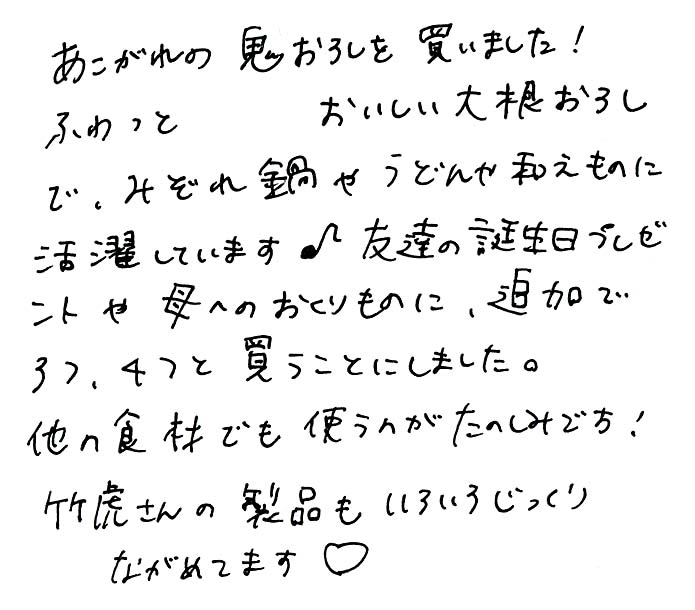 あこがれの鬼おろしを買いました！
ふわっと おいしい大根おろし
で、みぞれ鍋やうどんや和えものに
活濯しています♪友達の誕生日プレゼ
ントや母へのおくりものに、追加で
3つ、4つと買うことにしました。
他の食材でも使うのがたのしみです！
竹虎さんの製品もいろいろじっくり
ながめてます♡